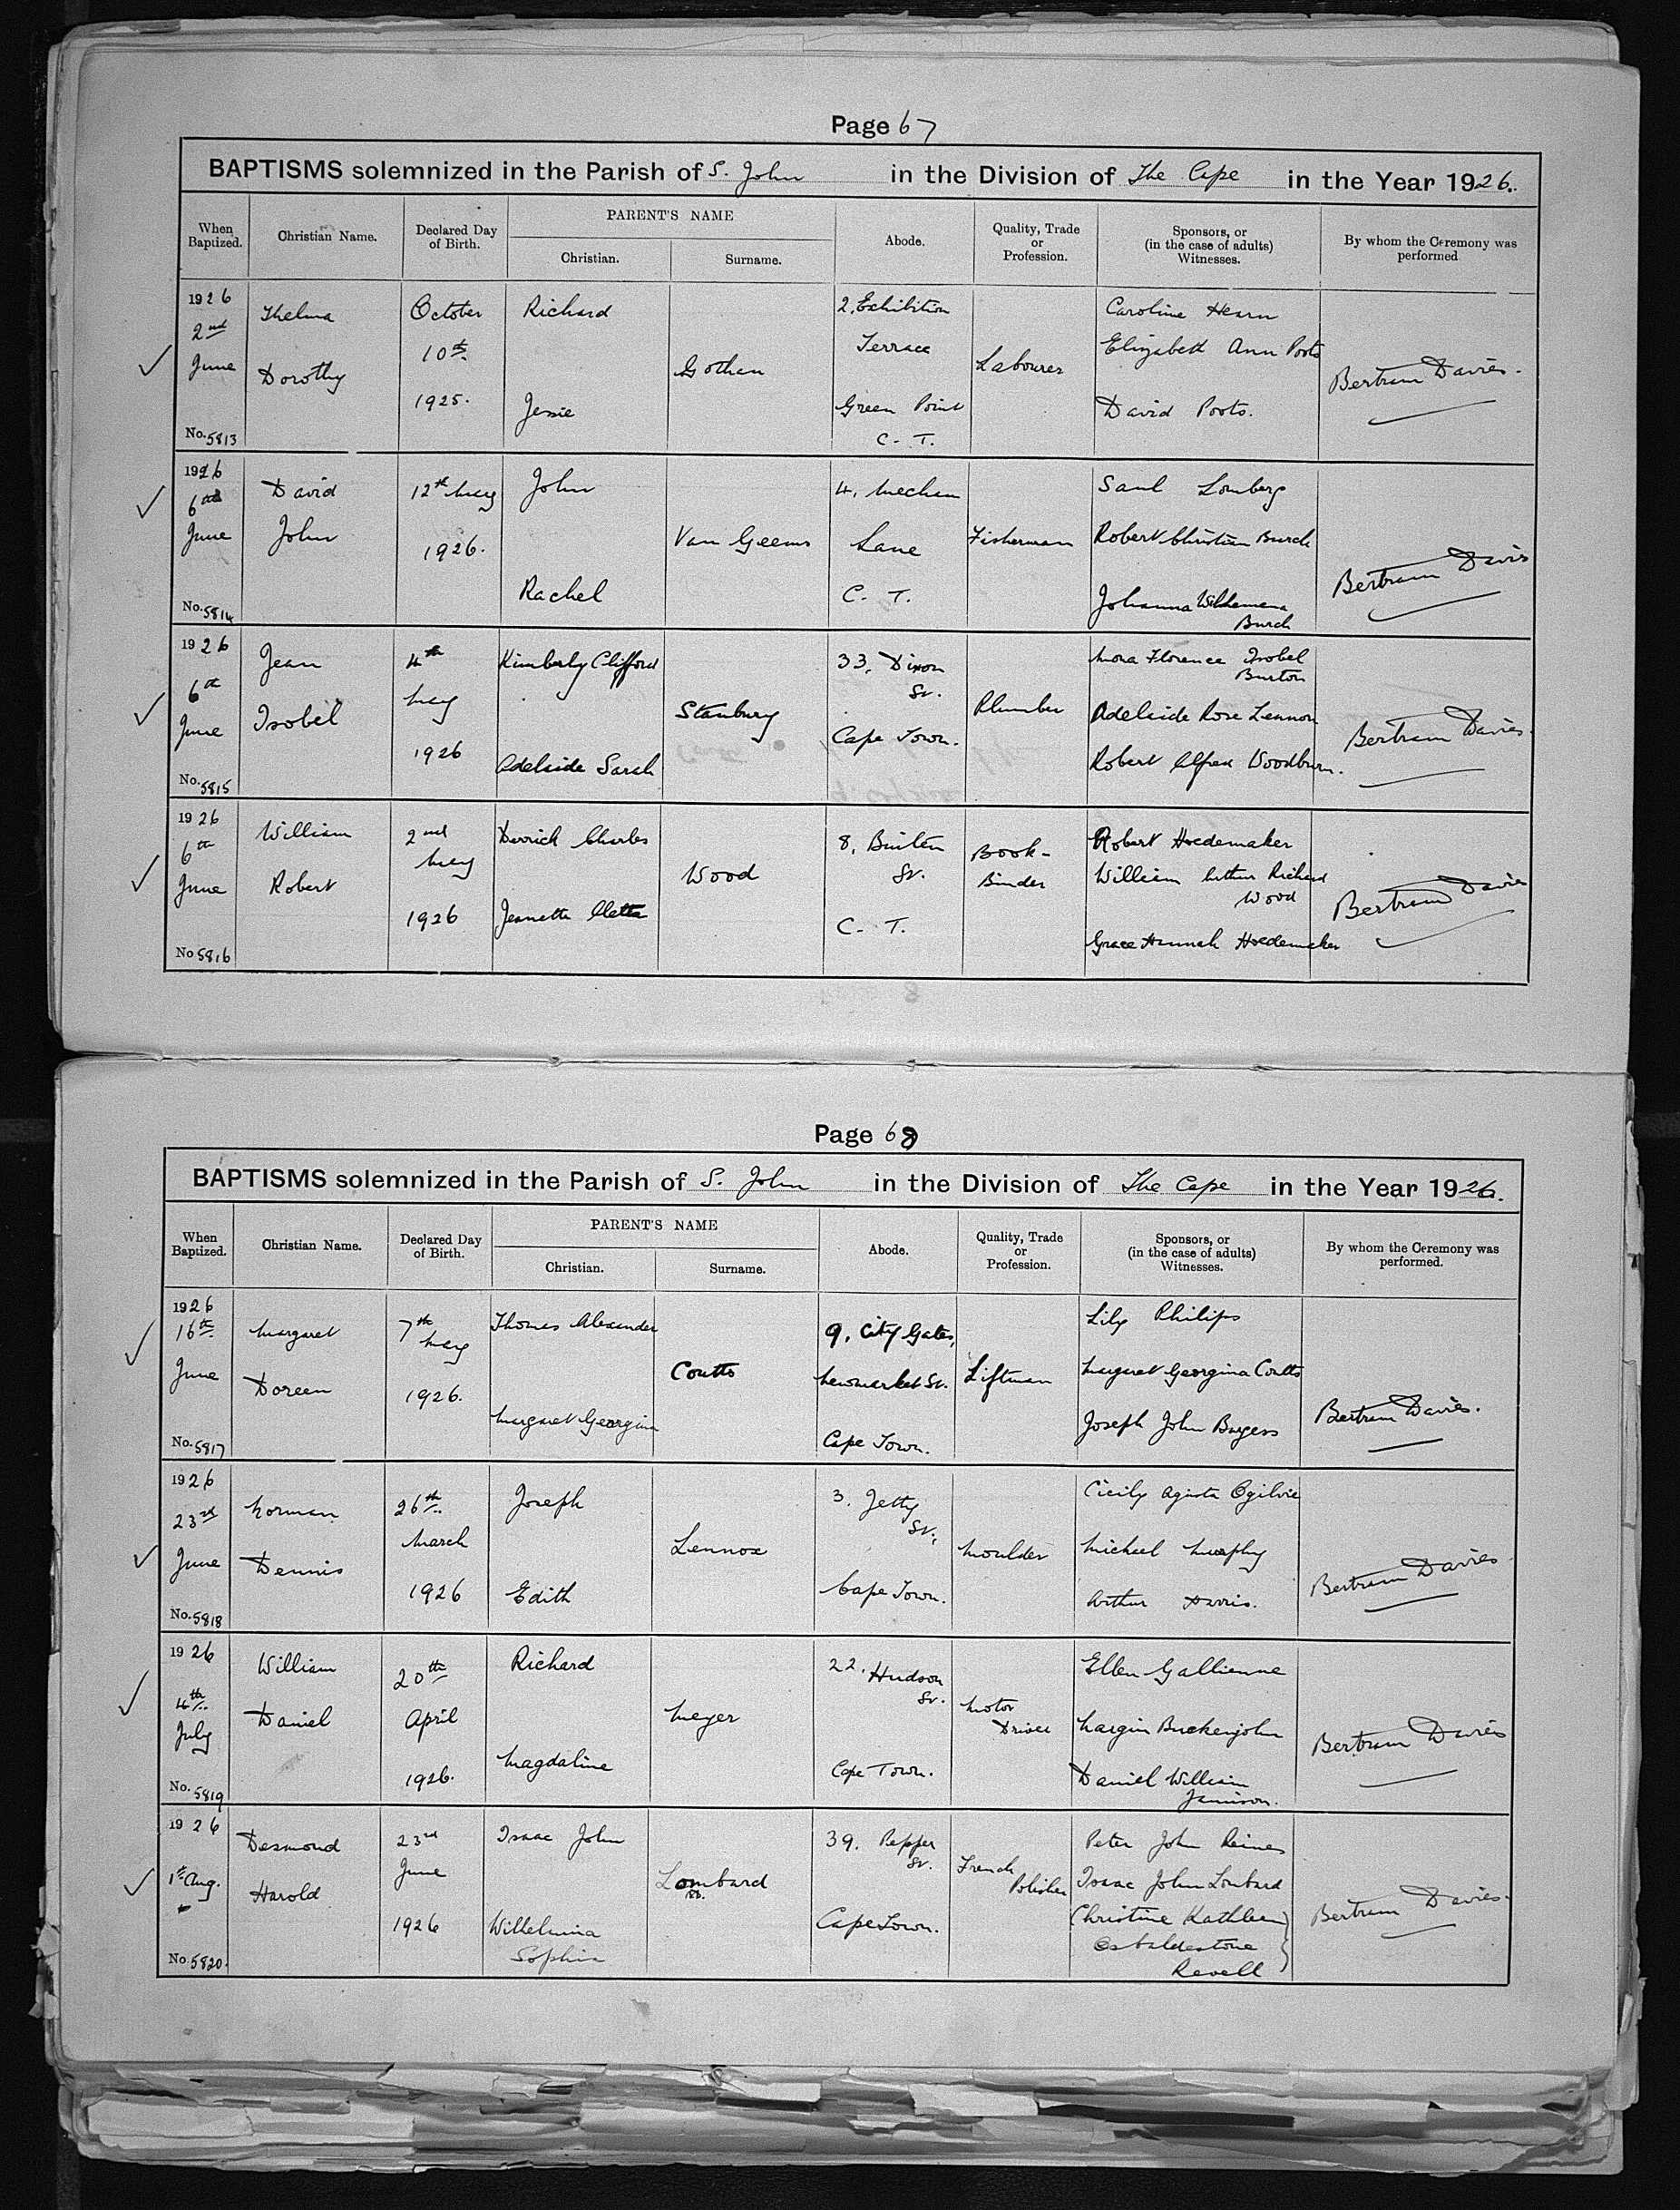 Page 67
BAPTISMS solemnized in the Parish of S. John in the Division of The Cape in the Year 1926.
When Baptized.
Christian Name.
Declared Day of Birth.
PARENT'S NAME
Christian.
Surname.
Abode.
Quality, Trade or Profession.
Sponsors, or (in the case of adults) Witnesses.
By whom the Ceremony was performed
1926
2nd
June
No. 5813
Thelma
Dorothy
October
10th
1925.
Richard
Jessie
Gothan
2. Exhibition
Terrace
Green Point
C. T.
Labourer
Caroline Hearn
Elizabeth Ann Poots
David Poots.
Bertram Davies.
1926
6th
June
No. 5814
David
John
12th May
1926.
John
Rachel
Van Geems
4. Mechan
Lane
C. T.
Fisherman
Saul Lomberg
Robert Christian Burch
Johanna Wilhemena
Burch
Bertram Davies
1926
6th
June
No. 5815
Jean
Isobel
4th
May
1926
Kimberly Clifford
Adelaide Sarah
Stanbury
33. Dixon
St.
Cape Town.
Plumber
Mona Florence Isobel
Burton
Adelaide Rose Lennon
Robert Alfred Woodburn.
Bertram Davies.
1926
6th
June
No 5816
William
Robert
2nd
May
1926
Derrick Charles
Jeanette Cletta
Wood
8, Buiten
St.
C. T.
Book-
Binder
Robert Hoedemaker
William Arthur Richard
Wood
Grace Hannah Hoedemaker
Bertram Davies
Page 68
BAPTISMS solemnized in the Parish of S. John in the Division of The Cape in the Year 1926.
When Baptized.
Christian Name.
Declared Day of Birth.
PARENT'S NAME
Christian.
Surname.
Abode.
Quality, Trade or Profession.
Sponsors, or (in the case of adults) Witnesses.
By whom the Ceremony was performed.
1926
16th
June
No. 5817
Margaret
Doreen
7th
May
1926.
Thomas Alexander
Margaret Georgina
Coutts
9, City Gates,
Newmarket St.
Cape Town.
Liftman
Lily Philips
Margaret Georgina Coutts
Joseph John Burgess
Bertram Davies.
1926
23rd
June
No. 5818
Norman
Dennis
26th
March
1926
Joseph
Edith
Lennox
3. Jetty
St.
Cape Town.
Moulder
Cicily Agusta Ogilvie
Michael Murphy
Arthur Harris.
Bertram Davies
1926
4th
July
No. 5819
William
Daniel
20th
April
1926.
Richard
Magdaline
Meyer
22. Hudson
St.
Cape Town.
Motor
Driver
Ellen Gallienne
Buckenjohn
Daniel William
Jamison.
Bertram Davies
1926
1st Aug.
No. 5820.
Desmond
Harold
23rd
June
1926
Isaac John
Wilhelmina
Sophia
Lombard
39. Pepper
St.
Cape Town.
French
Polisher
Peter John Reines
Isaac John Lombard
Christine Kathleen
Osbaldestone
Revell
Bertram Davies.